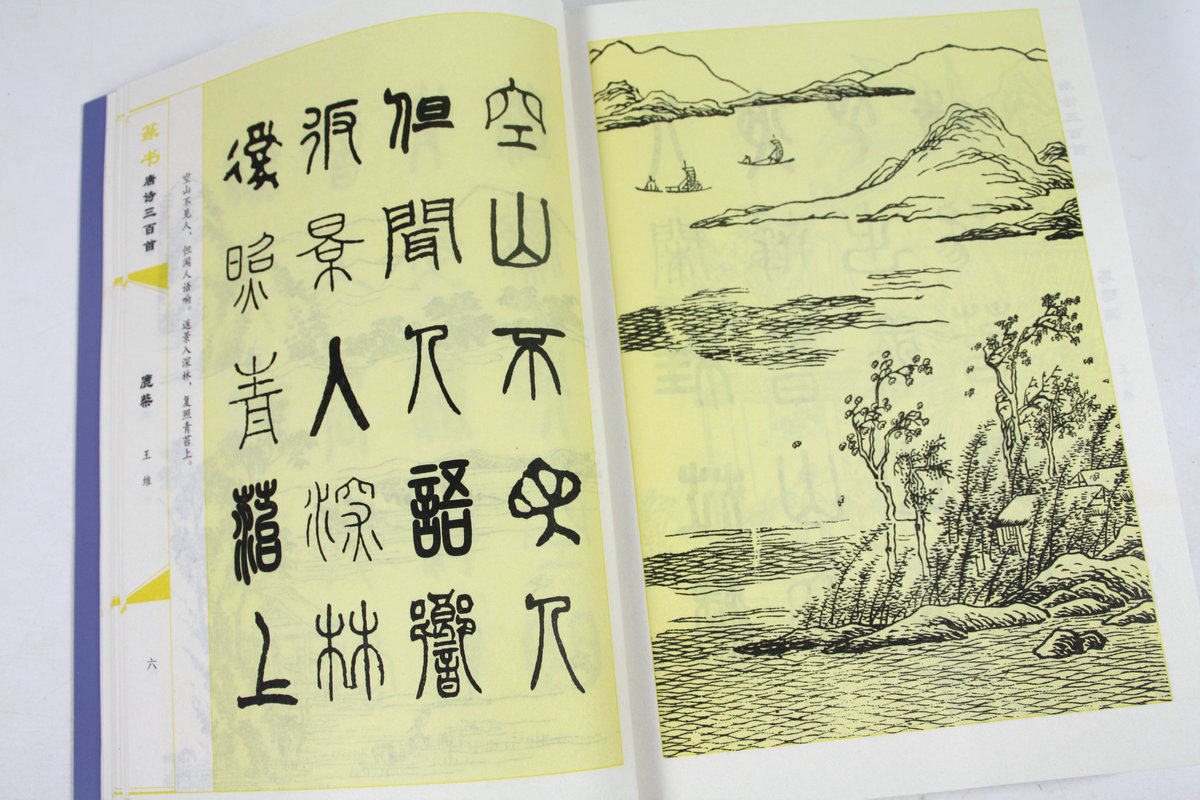 空山不見人
但聞人語響
返景入深林
復照青苔上
空山不见人，但闻人语响。返景入深林，复照青苔上。
篆书唐诗三百首
鹿柴
王维
六